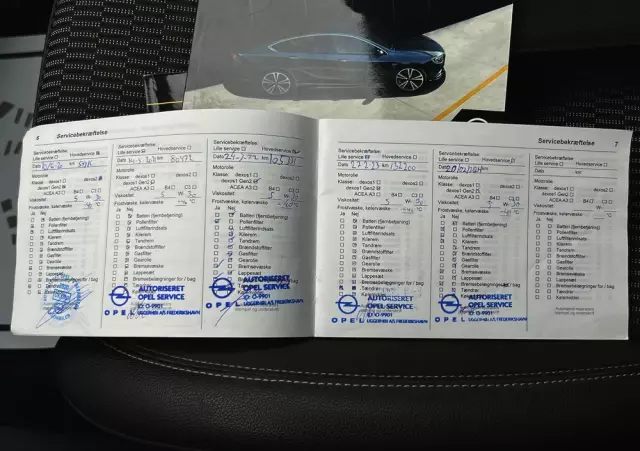 6 Servicebekræftelse
Servicebekræftelse:
Lille service Hovedservice
Dato km
Motorolie
Klasse: dexos1 dexos2
dexos1 Gen2
ACEA A3 B4 C3
Viskositet: 5 W 30
Frostvæske, kølervæske °C
Ja Nej
Batteri (fjernbetjening)
Pollenfilter
Luftfilterindsats
Kilerem
Tandrem
Brændstoffilter
Gasfilter
Gearolie
Bremsevæske
Lappesæt
Bremsebelægninger for / bag
Servicebekræftelse:
Lille service Hovedservice
Dato km 80472
Motorolie
Klasse: dexos1 dexos2
dexos1 Gen2
ACEA A3 B4 C3
Viskositet: 5 W 30
Frostvæske, kølervæske °C
Ja Nej
Batteri (fjernbetjening)
Pollenfilter
Luftfilterindsats
Kilerem
Tandrem
Brændstoffilter
Gasfilter
Gearolie
Bremsevæske
Lappesæt
Bremsebelægninger for / bag
AUTORISERET
OPEL SERVICE
ID O-9901
OPEL UGGERHØJ A/S, FREDERIKSHAVN
Servicebekræftelse:
Lille service Hovedservice
Dato km
Motorolie
Klasse: dexos1 dexos2
dexos1 Gen2
ACEA A3 B4 C3
Viskositet: 5 W 30
Frostvæske, kølervæske °C
Ja Nej
Batteri (fjernbetjening)
Pollenfilter
Luftfilterindsats
Kilerem
Tandrem
Brændstoffilter
Gasfilter
Gearolie
Bremsevæske
Lappesæt
AUTORISERET
OPEL SERVICE
ID O-9901
OPEL UGGERHØJ A/S, FREDERIKSHAVN
Servicebekræftelse 7
Servicebekræftelse:
Lille service Hovedservice
Dato km 136200
Motorolie
Klasse: dexos1 dexos2
dexos1 Gen2
ACEA A3 B4 C3
Viskositet: 5 W 30
Frostvæske, kølervæske °C
Ja Nej
Batteri (fjernbetjening)
Pollenfilter
Luftfilterindsats
Kilerem
Tandrem
Brændstoffilter
Gasfilter
Gearolie
Bremsevæske
Lappesæt
Bremsebelægninger for / bag
Tændrør
AUTORISERET
OPEL SERVICE
ID O-9901
OPEL UGGERHØJ A/S, FREDERIKSHAVN
Servicebekræftelse:
Lille service Hovedservice
Dato
Motorolie
Klasse: dexos1 dexos2
dexos1 Gen2
ACEA A3 B4 C3
Viskositet: 5 W
Frostvæske, kølervæske °C
Ja Nej
Batteri (fjernbetjening)
Pollenfilter
Luftfilterindsats
Kilerem
Tandrem
Brændstoffilter
Gasfilter
Gearolie
Bremsevæske
Lappesæt
Bremsebelægninger for / bag
Tændrør
AUTORISERET
OPEL SERVICE
ID O-9901
OPEL UGGERHØJ A/S, FREDERIKSHAVN
Servicebekræftelse:
Lille service Hovedservice
Dato km
Motorolie
Klasse: dexos1 dexos2
dexos1 Gen2
ACEA A3 B4 C3
Viskositet: W
Frostvæske, kølervæske °C
Ja Nej
Batteri (fjernbetjening)
Pollenfilter
Luftfilterindsats
Kilerem
Tandrem
Brændstoffilter
Gasfilter
Gearolie
Bremsevæske
Lappesæt
Bremsebelægninger for / bag
Tændrør
Kølemiddel